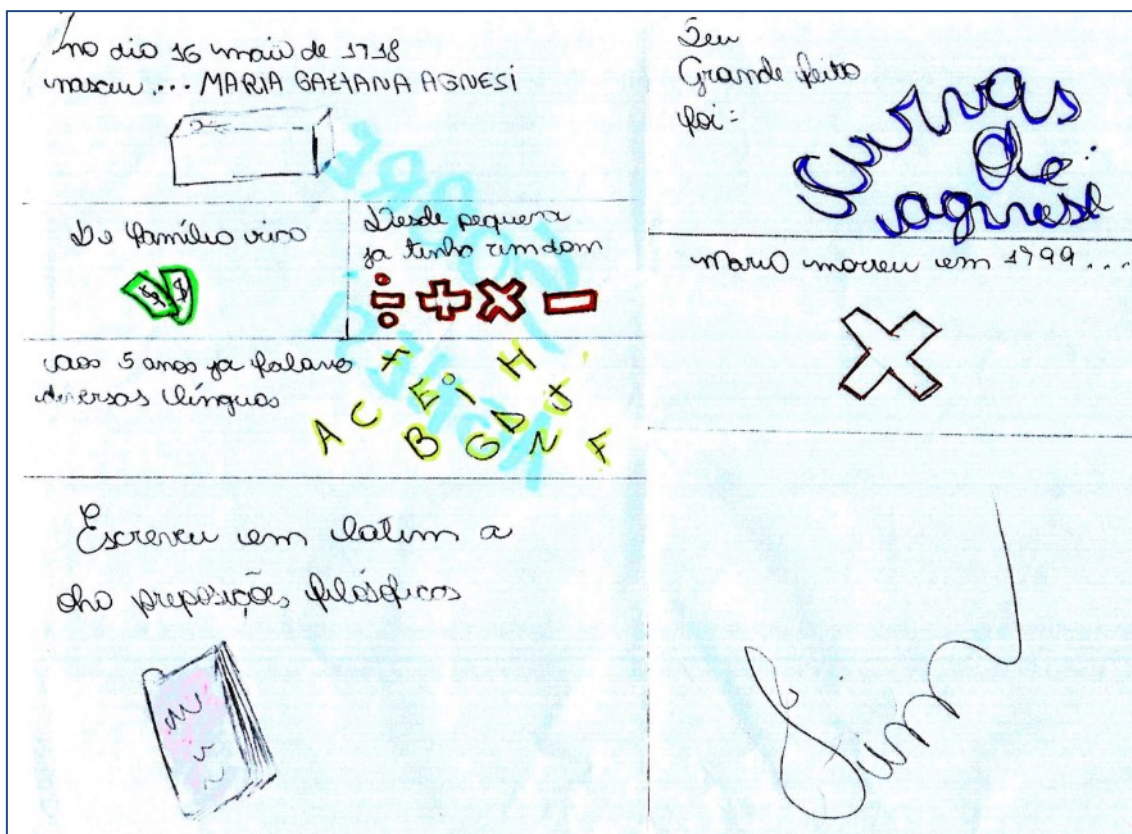 no dia 16 maio de 1718
nasceu ... MARIA GAETANA AGNESI
De família rica
$ $
Desde pequena
ja tinha um dom
÷ + × −
aos 5 anos ja falava
diversas línguas
H
E i
A C B G D N F
Escreveu em latim a
preposições filósoficas
Seu
Grande feito
foi:
Curvas
de
agnesi
Maria morreu em 1799 ...
Fim